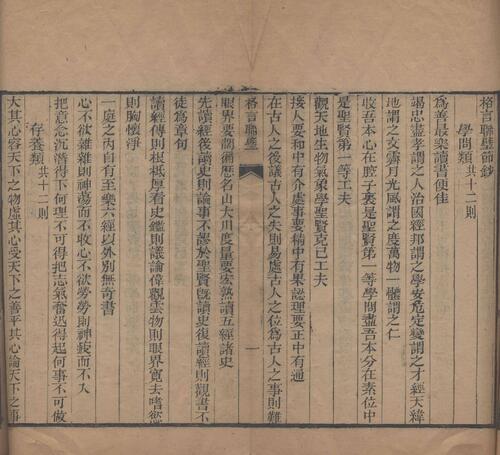 格言聯璧節鈔
學問類共十二則
為善最樂讀書便佳
竭忠盡孝謂之人治國經邦謂之學安危定變謂之才經天緯
地謂之文霽月光風謂之度萬物一體謂之仁
收吾本心在腔子裏是聖賢第一等學問盡吾本分在素位中
是聖賢第一等工夫
觀天地生物氣象學聖賢克己工夫
接人要和中有介處事要精中有果認理要正中有通
在古人之後議古人之失則易處古人之位為古人之事則難
格言聯璧
一
眼界要闊徧歷名山大川度量要宏熟讀五經諸史
先讀經後讀史則論事不謬於聖賢既讀史復讀經則觀書不
徒為章句
讀經傳則根柢厚看史鑑則議論偉觀雲物則眼界寬去嗜慾
則胸懷淨
一庭之內自有至樂六經以外別無奇書
心不欲雜雜則神蕩而不收心不欲勞勞則神疲而不入
把意念沉潛得下何理不可得把志氣奮迅得起何事不可做
存養類共十二則
大其心容天下之物虛其心受天下之善平其心論天下之事